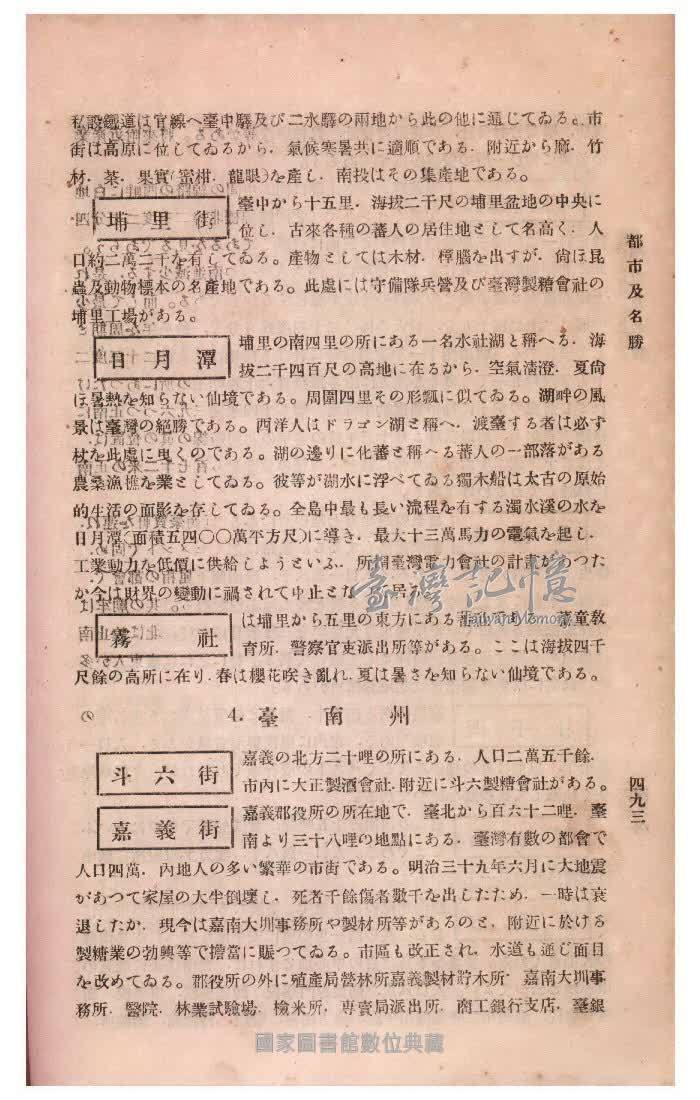 都市及名勝
四九三
私設鐵道は官線へ臺中驛及び二水驛の兩地から此の他に通じてゐる。市
街は高原に位してゐるから、氣候寒暑共に適順である。附近から麻、竹
材、茶、果實(蜜柑、龍眼)を產し、南投はその集產地である。
埔里街
臺中から十五里、海拔二千尺の埔里盆地の中央に
位し、古來各種の蕃人の居住地として名高く、人
口約二萬二千を有してゐる。產物としては木材、樟腦を出すが、尙ほ昆
蟲及動物標本の名產地である。此處には守備隊兵營及び臺灣製糖會社の
埔里工場がある。
日月潭
埔里の南四里の所にある一名水社湖と稱へる、海
拔二千四百尺の高地に在るから、空氣淸澄、夏尙
ほ暑熱を知らない仙境である。周圍四里その形瓢に似てゐる。湖畔の風
景は臺灣の絕勝である。西洋人はドラゴン湖と稱へ、渡臺する者は必ず
杖を此處に曳くのである。湖の邊りに化蕃と稱へる蕃人の一部落がある
農桑漁樵を業としてゐる。彼等が湖水に浮べてゐる獨木船は太古の原始
的生活の面影を存してゐる。全島中最も長い流程を有する濁水溪の水を
日月潭(面積五四〇〇萬平方尺)に導き、最大十三萬馬力の電氣を起し、
工業動力を低價に供給しようといふ、所謂臺灣電力會社の計畫があつた
か今は財界の變動に禍されて中止とな
霧社
は埔里から五里の東方にある蕃社である、蕃童敎
育所、警察官吏派出所等がある。ここは海拔四千
尺餘の高所に在り、春は櫻花咲き亂れ、夏は暑さを知らない仙境である。
4. 臺南州
斗六街
嘉義の北方二十哩の所にある、人口二萬五千餘、
市內に大正製酒會社、附近に斗六製糖會社がある。
嘉義街
嘉義郡役所の所在地で、臺北から百六十二哩、臺
南より三十八哩の地點にある、臺灣有數の都會で
人口四萬、內地人の多い繁華の市街である。明治三十九年六月に大地震
があつて家屋の大半倒壞し、死者千餘傷者數千を出したため、一時は衰
退したか、現今は嘉南大圳事務所や製材所等があるのと、附近に於ける
製糖業の勃興等で擔當に賑つてゐる。市區も改正され、水道も通じ面目
を改めてゐる。郡役所の外に殖產局營林所嘉義製材貯木所、嘉南大圳事
務所、醫院、林業試驗場、檢米所、專賣局派出所、商工銀行支店、臺銀
臺灣記憶
國家圖書館數位典藏